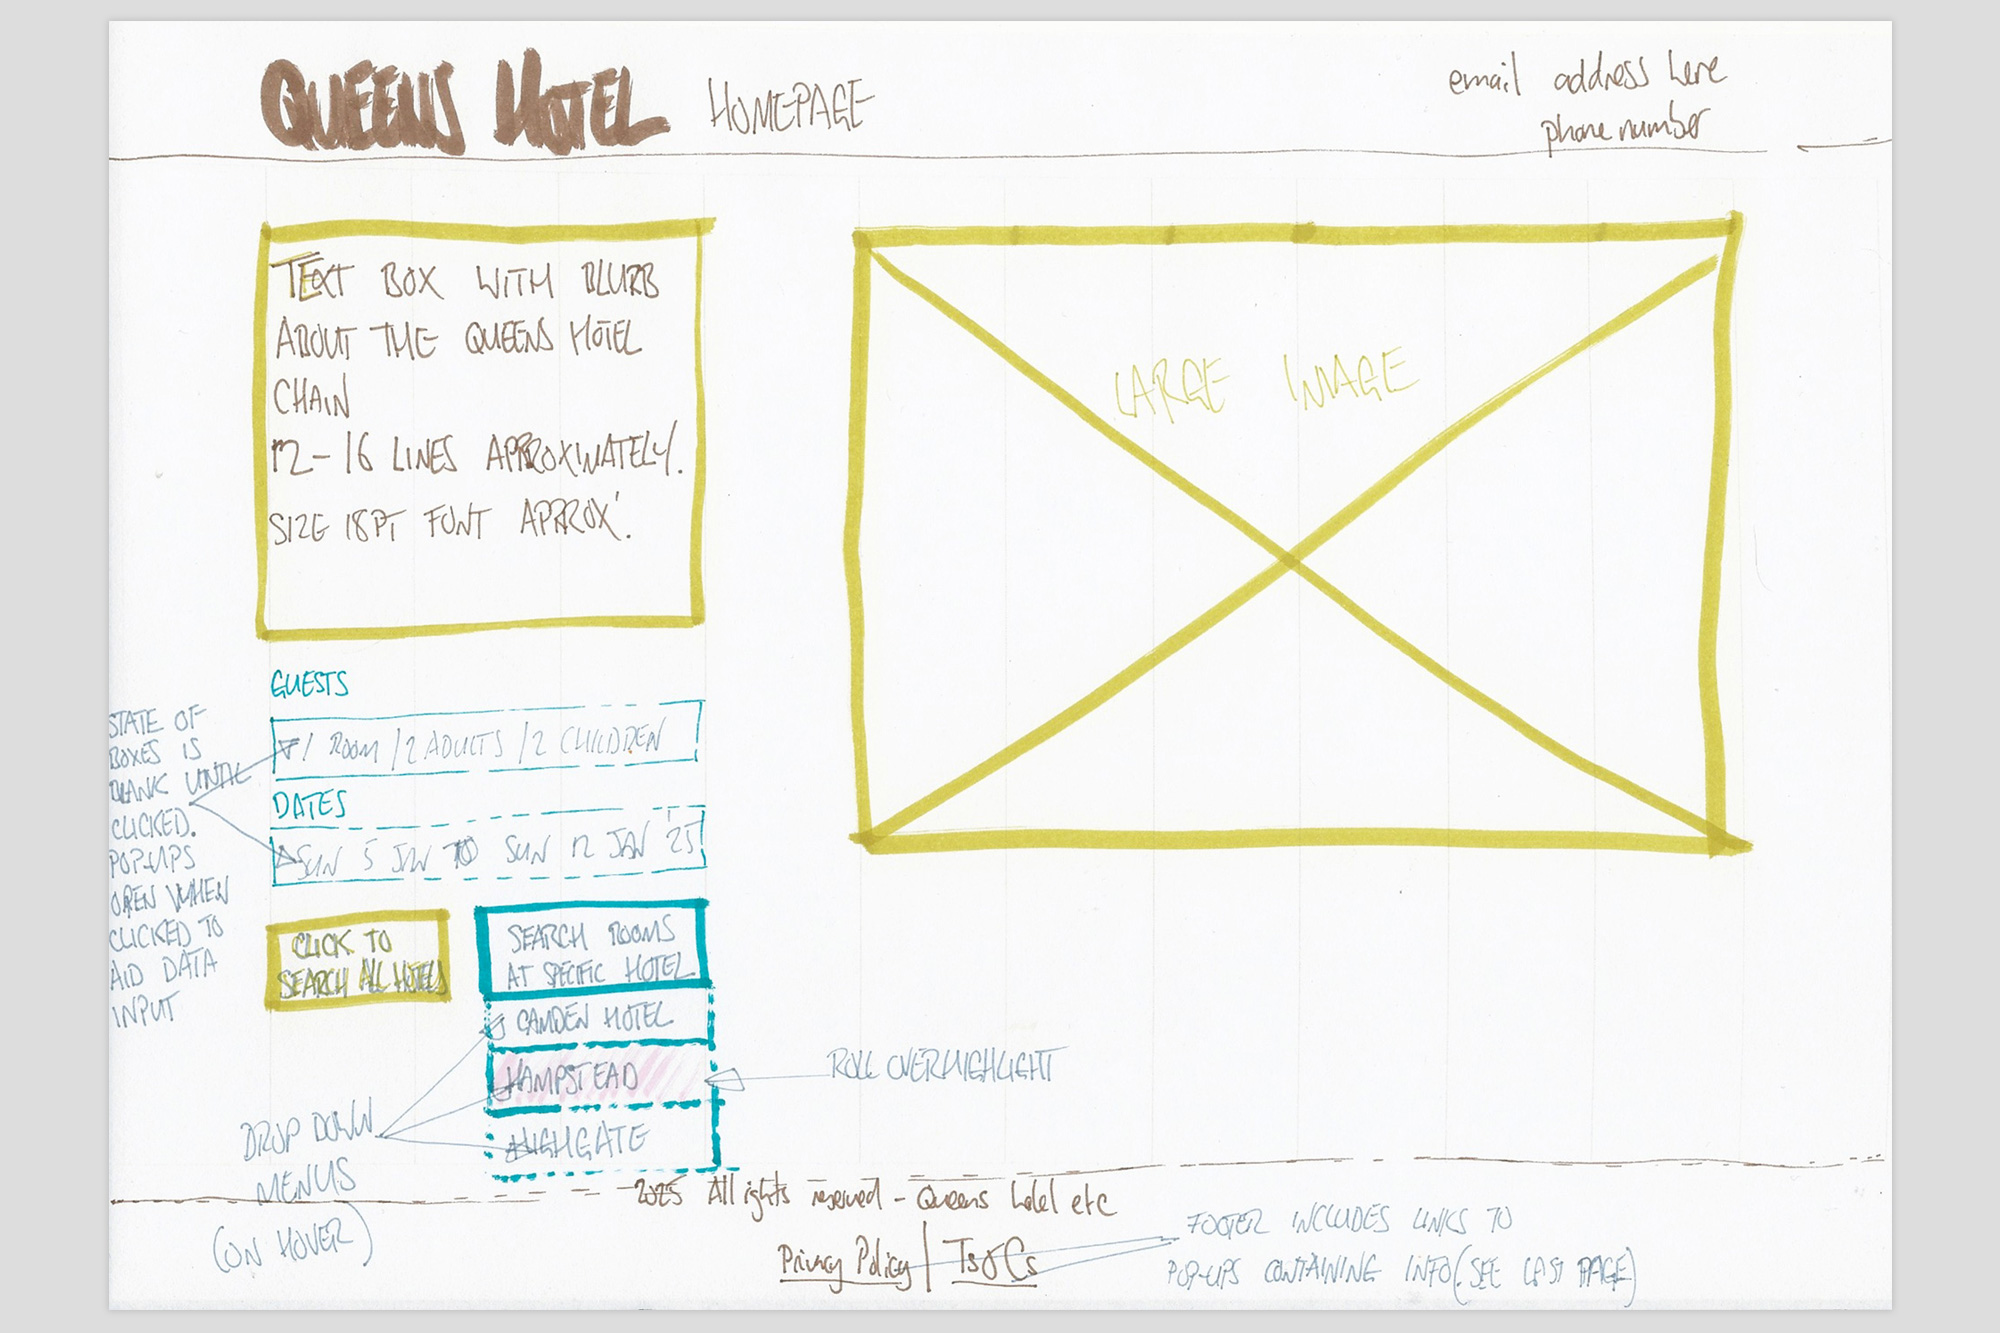 QUEENS HOTEL HOMEPAGE
email address here
phone number
TEXT BOX WITH BLURB
ABOUT THE QUEENS HOTEL
CHAIN
12-16 LINES APPROXIMATELY.
SIZE 18PT FONT APPROX'.
LARGE IMAGE
GUESTS
1 ROOM / 2 ADULTS / 2 CHILDREN
DATES
SUN 5 JAN TO SUN 12 JAN '25
STATE OF
BOXES IS
BLANK UNTIL
CLICKED.
POP-UPS
OPEN WHEN
CLICKED TO
AID DATA
INPUT
CLICK TO
SEARCH ALL HOTELS
SEARCH ROOMS
AT SPECIFIC HOTEL
CAMDEN HOTEL
HAMPSTEAD
HIGHGATE
ROLL OVER HIGHLIGHT
DROP DOWN
MENUS
(ON HOVER)
2025 All rights reserved - Queens hotel etc
Privacy Policy | Ts&Cs
FOOTER INCLUDES LINKS TO
POP-UPS CONTAINING INFO (SEE LAST PAGE)